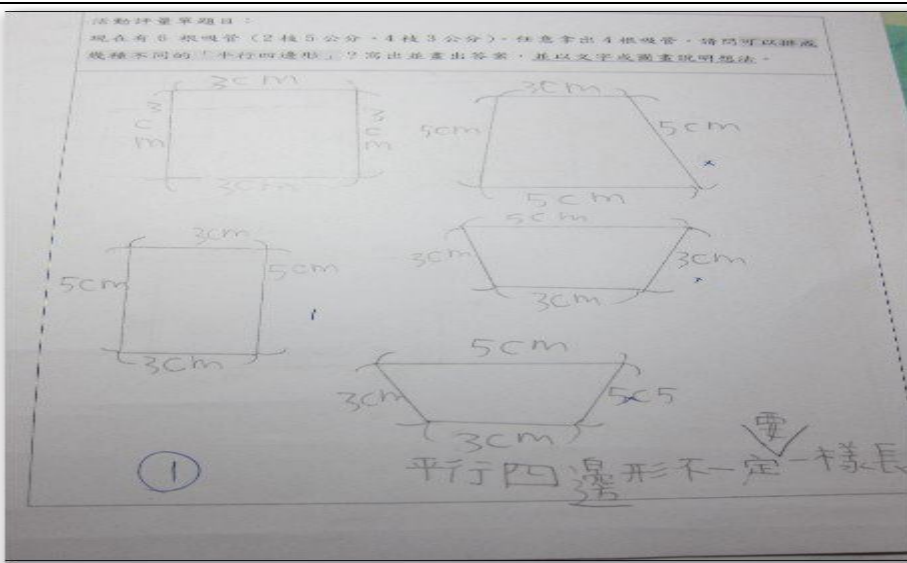 活動評量單題目：
現在有 6 根吸管（2 枝 5 公分，4 枝 3 公分），任意拿出 4 根吸管，請問可以排成
幾種不同的「平行四邊形」？寫出並畫出答案，並以文字或圖畫說明想法。
3cm
3cm
3cm
3cm
3cm
5cm
5cm
5cm
3cm
5cm
5cm
3cm
5cm
3cm
3cm
3cm
5cm
3cm
5c5
3cm
1
要
平行四邊形不一定一樣長